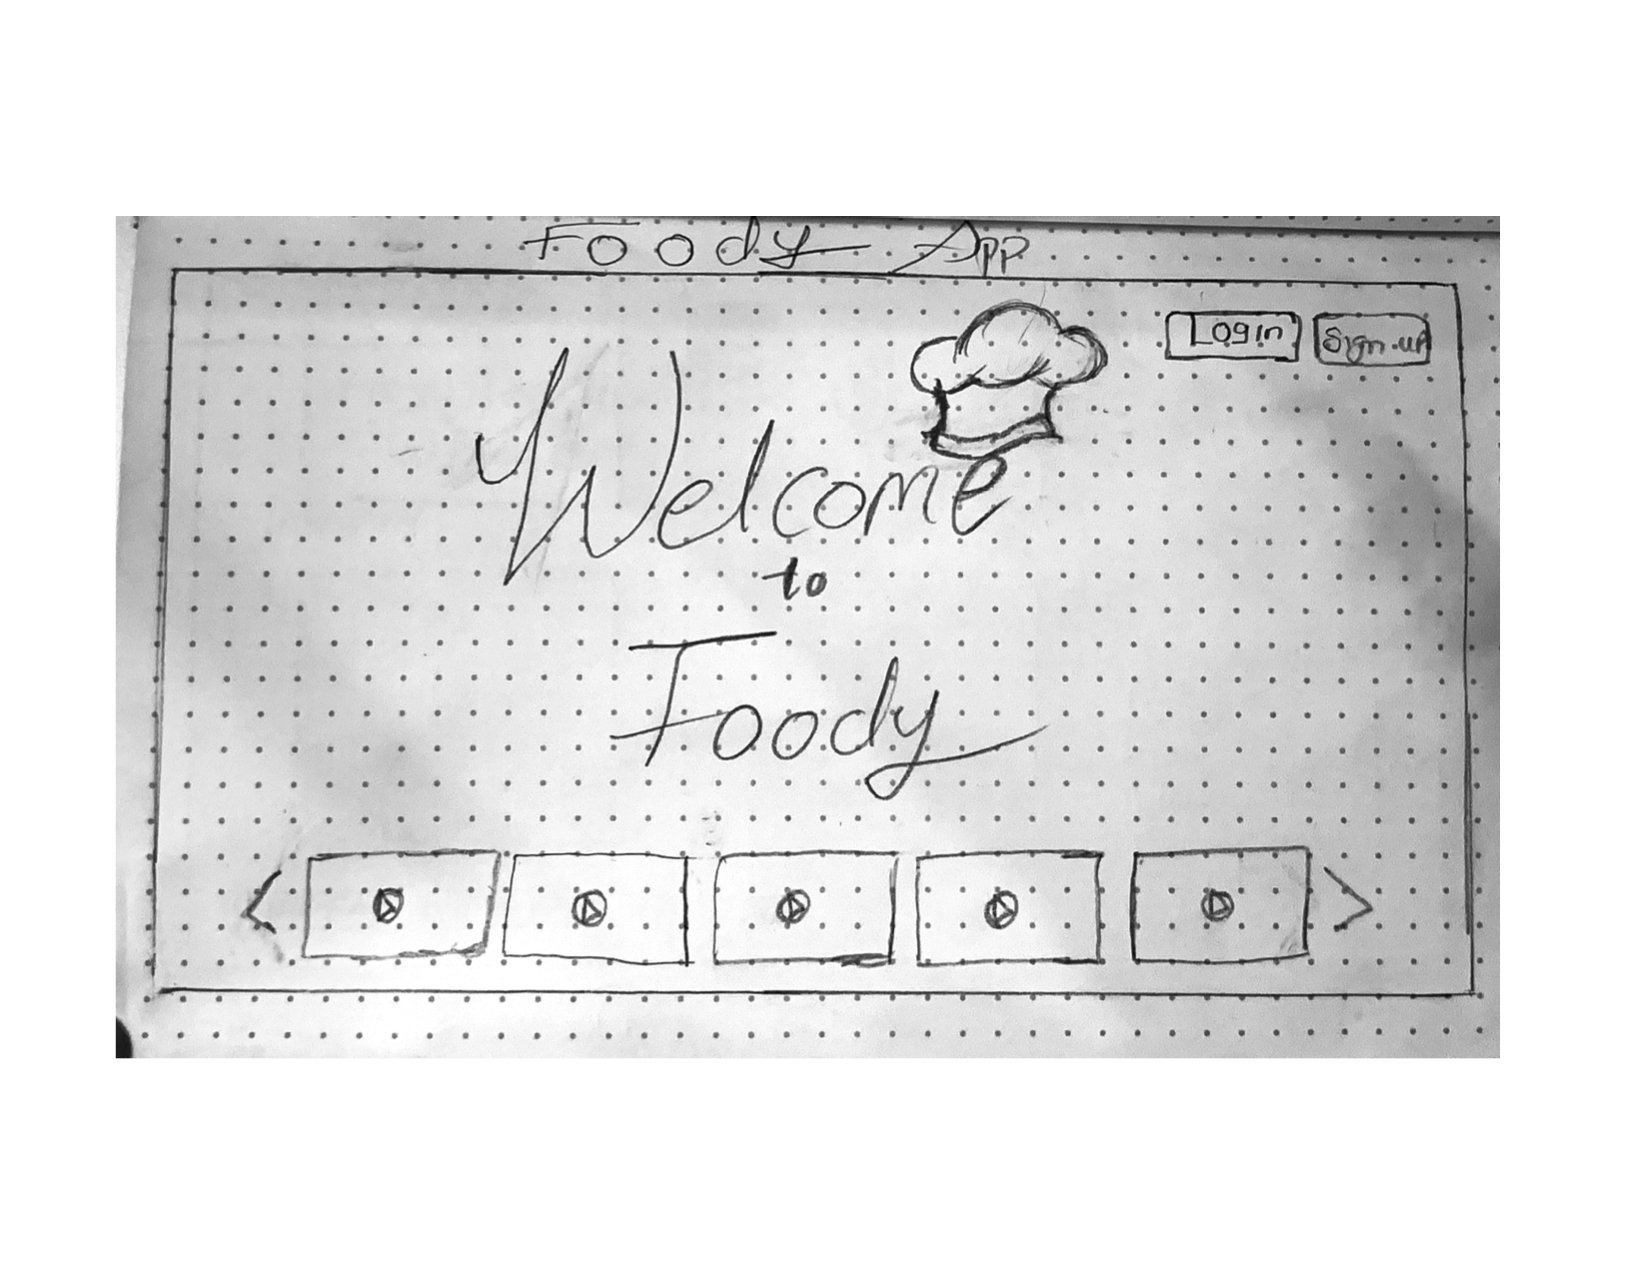 Foody App
Login
Sign-up
Welcome
to
Foody